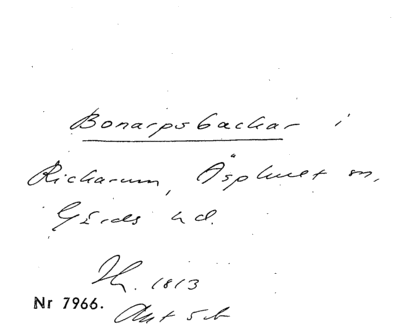 Bonarpsbackar i
Rickarum, Äsphult sn,
Gärds hd.
1813
Nr 7966.